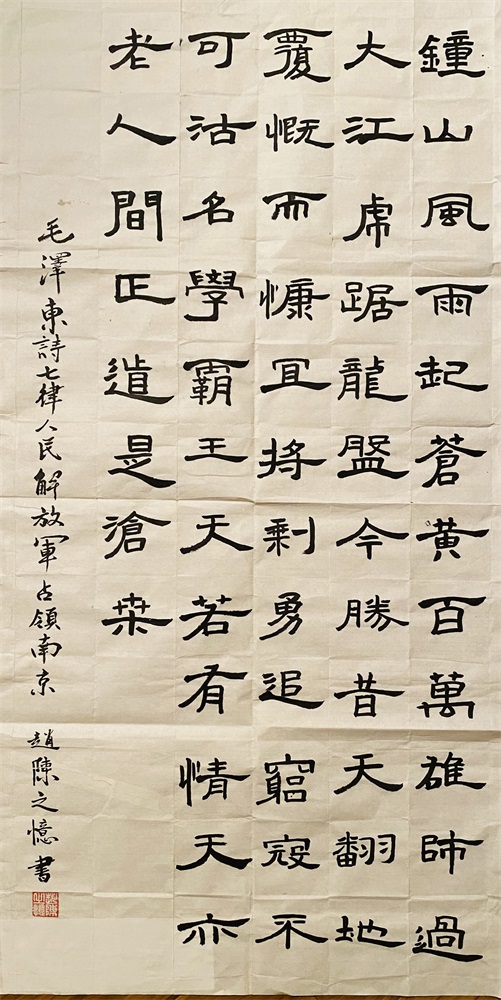 鐘山風雨起蒼黃百萬雄師過
大江虎踞龍盤今勝昔天翻地
覆慨而慷宜將剩勇追窮寇不
可沽名學霸王天若有情天亦
老人間正道是滄桑
毛澤東詩七律人民解放軍占領南京
趙陳之憶書